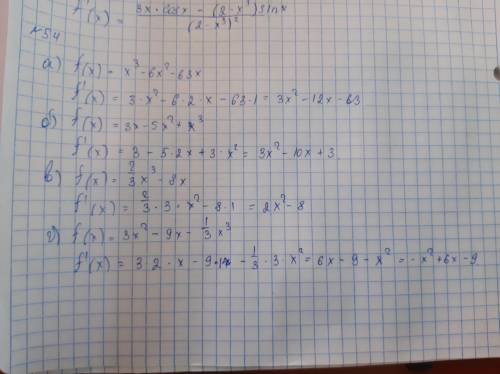 f'(x) = 3x² · cosx - (2 - x³) sinx / (2 - x³)²
№54
а) f(x) = x³ - 6x² - 63x
f'(x) = 3 · x² - 6 · 2 · x - 63 · 1 = 3x² - 12x - 63
б) f(x) = 3x - 5x² + x³
f'(x) = 3 - 5 · 2x + 3 · x² = 3x² - 10x + 3.
в) f(x) = 2/3 x³ - 8x
f'(x) = 2/3 · 3 · x² - 8 · 1 = 2x² - 8
г) f(x) = 3x² - 9x - 1/3 x³
f'(x) = 3 · 2 · x - 9 · 1 - 1/3 · 3 · x² = 6x - 9 - x² = - x² + 6x - 9